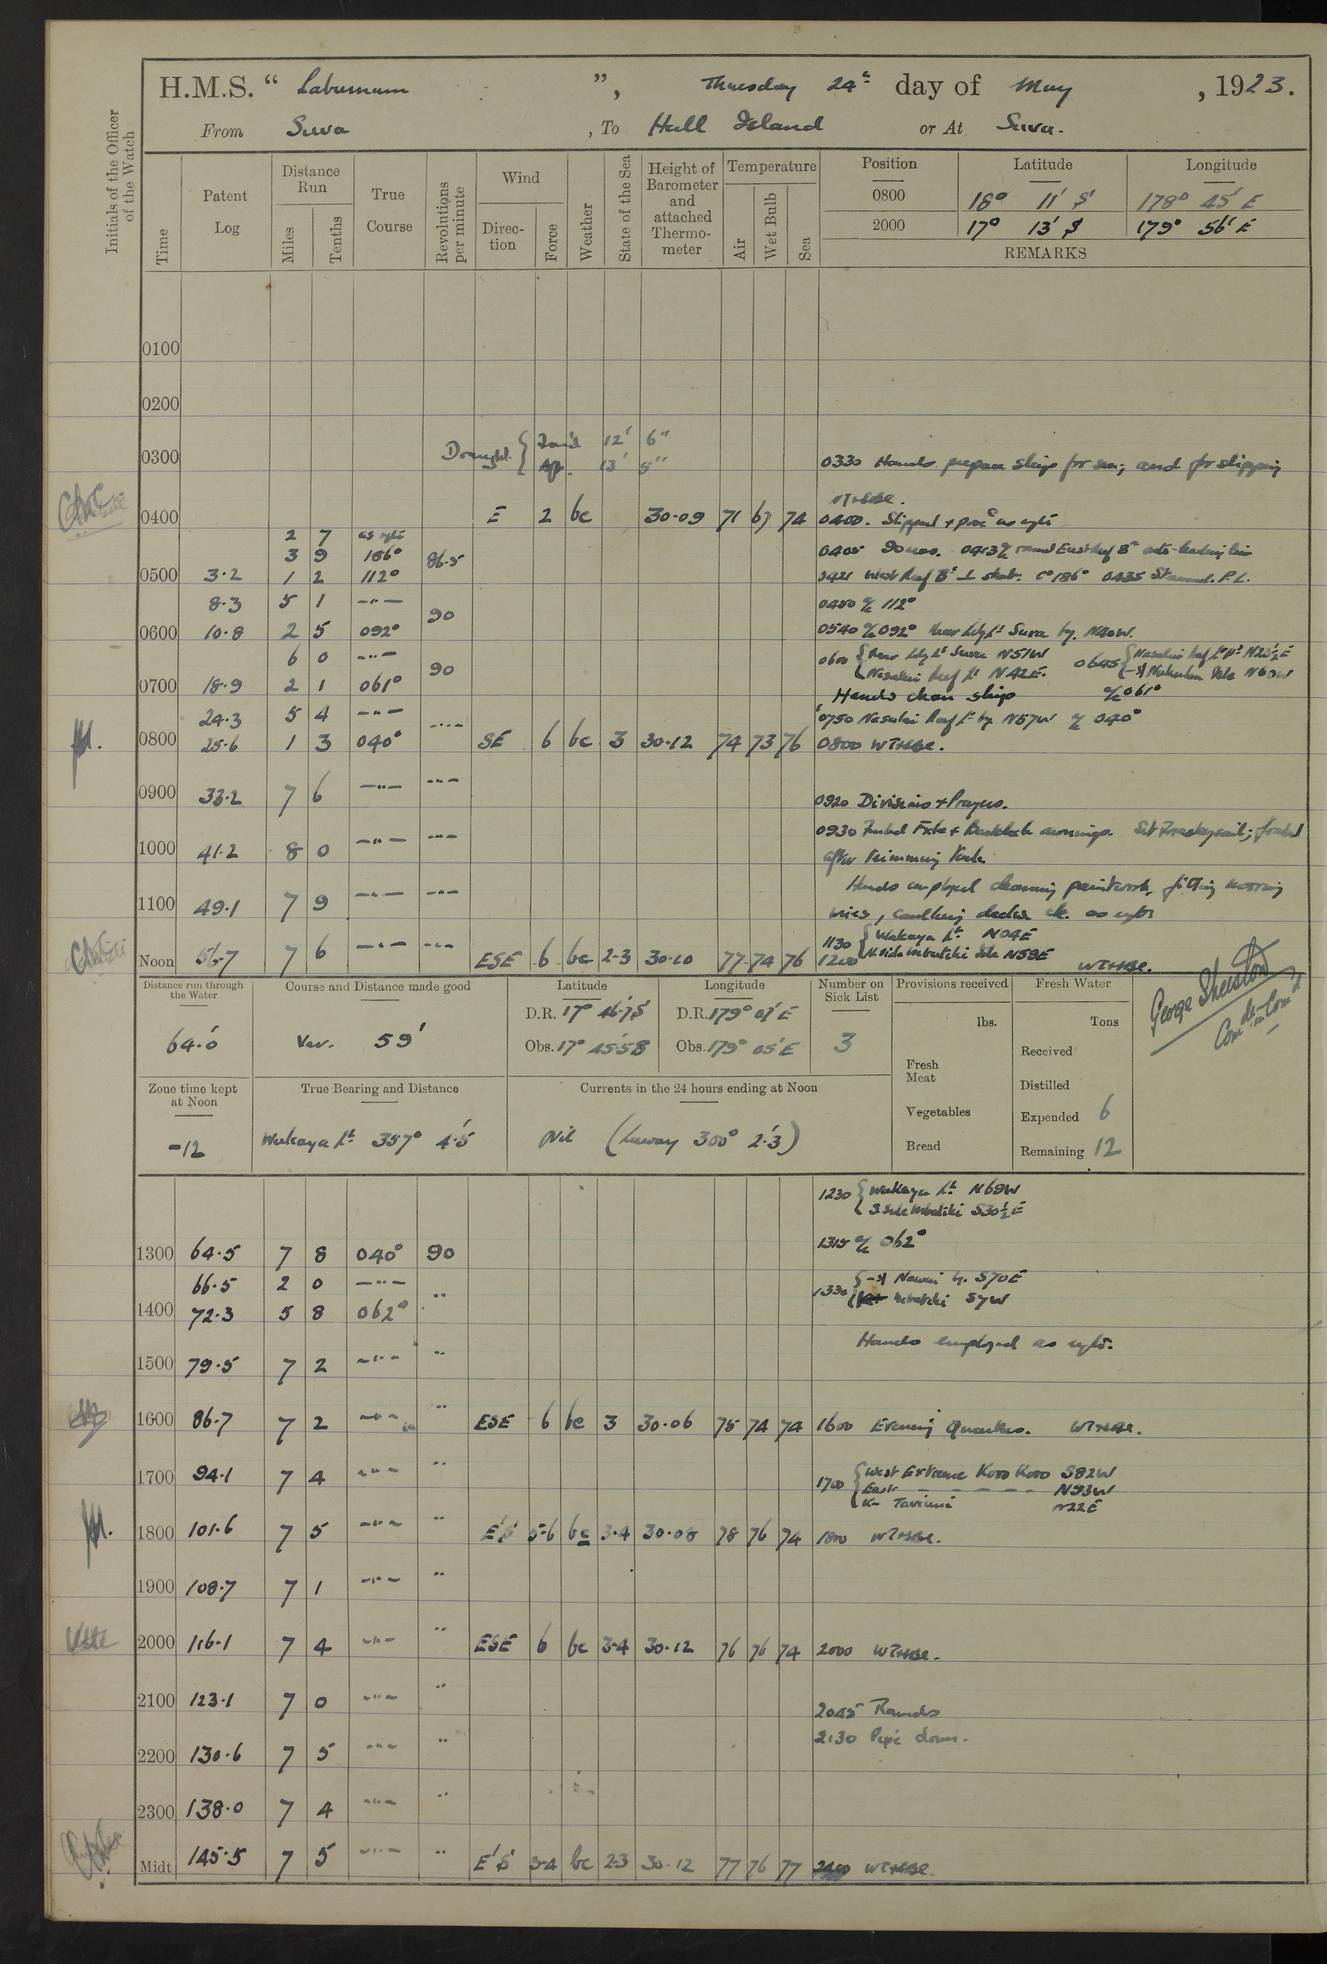 H.M.S. “ Laburnum ”, Thursday 24th day of May , 1923.
From Suva , To Hull Island or At Suva.
Initials of the Officer of the Watch
Time
Patent Log
Distance Run
Miles
Tenths
True Course
Revolutions per minute
Wind
Direction
Force
Weather
State of the Sea
Height of Barometer and attached Thermometer
Temperature
Air
Wet Bulb
Sea
Position Latitude Longitude
0800 18° 11' S 178° 45' E
2000 17° 13' S 179° 56' E
REMARKS
0100
0200
Draught. { For'd 12' 6"
Aft. 13' 5"
0300 0330 Hands prepare ship for sea; and for slipping
0400 E 2 bc 30.09 71 67 74 0400. Slipped + proc. as reqte
2 7 as reqte
3 9 186° 86.5
0500 3.2 1 2 112° 0421 West Reef Bn ⊥ stab. Co 186° 0435 Streamed. P.L.
8.3 5 1 —"— 90 0450 a/c 112°
0600 10.8 2 5 092° 0540 a/c 092° Rear Ldg Lt Suva by. N40W.
6 0 —"— 90 0600 { Rear Ldg Lt Suva N51W
Nasalai Reef Lt N42E.
0700 18.9 2 1 061° Hands clean ship a/c 061°
24.3 5 4 —"— —"— 0750 Nasalai Reef Lt by N57W a/c 040°
0800 25.6 1 3 040° SE 6 bc 3 30.12 74 73 76 0800 WT+BL.
0900 33.2 7 6 —"— —"— 0920 Divisions + Prayers.
0930 Furled Fxle + Quarterdeck awnings. Set Foretrysail; furled
1000 41.2 8 0 —"— —"— after trimming tack.
Hands employed cleaning paintwork, fitting mooring
1100 49.1 7 9 —"— —"— wires, caulking decks etc. as reqte
1130 { Wakaya Lt. N04E
Noon 56.7 7 6 —"— —"— ESE 6 bc 2-3 30.10 77 74 76 1200 WT+BL.
Distance run through the Water 64.0
Course and Distance made good Var. 59'
Latitude D.R. 17° 46'.7S Obs. 17° 45'.5S
Longitude D.R. 179° 07' E Obs. 179° 05' E
Number on Sick List 3
Provisions received
lbs.
Fresh Meat
Vegetables
Bread
Fresh Water
Tons
Received
Distilled
Expended 6
Remaining 12
Zone time kept at Noon -12
True Bearing and Distance Wakaya Lt. 357° 4'.5
Currents in the 24 hours ending at Noon Nil (Leeway 300° 2'.3)
1230 { Wakaya Lt. N69W
S. Side Mbatiki S30½E
1315 a/c 062°
1300 64.5 7 8 040° 90
66.5 2 0 —"— "
1400 72.3 5 8 062° 1330 Mbatiki S7W
Hands employed as reqte.
1500 79.5 7 2 —"— "
1600 86.7 7 2 —"— " ESE 6 bc 3 30.06 75 74 74 1600 Evening Quarters. WT+BL.
1700 94.1 7 4 —"— " 1700 { West Extreme Koro Koro S82W
East — — — — N53W
Taviuni N22E
1800 101.6 7 5 —"— " E'S 5-6 bc 3-4 30.08 78 76 74 1800 WT+BL.
1900 108.7 7 1 —"— "
2000 116.1 7 4 —"— " ESE 6 bc 3-4 30.12 76 76 74 2000 WT+BL.
2100 123.1 7 0 —"— " 2045 Rounds
2130 Pipe down.
2200 130.6 7 5 —"— "
2300 138.0 7 4 —"— "
Midt 145.5 7 5 —"— " E'S 3-4 bc 2-3 30.12 77 76 77 2400 WT+BL.